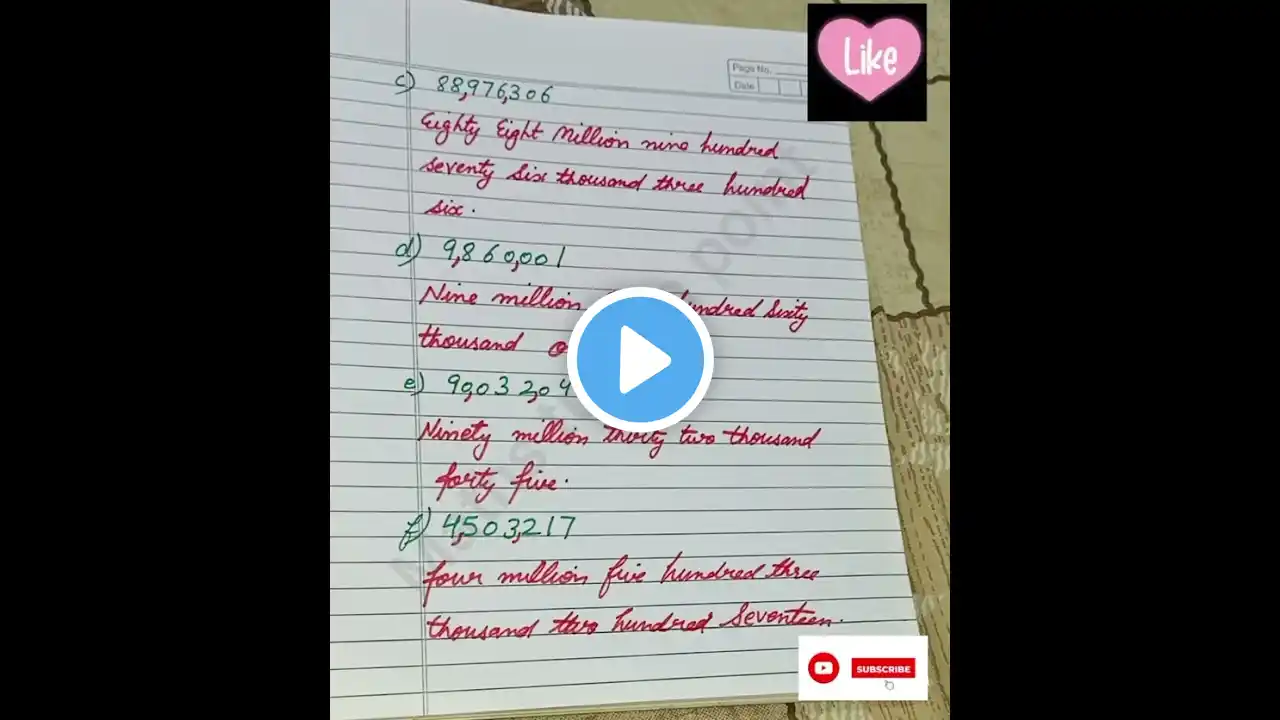 Like
Page No.
Date
c) 88,976,306
Eighty Eight Million nine hundred
seventy six thousand three hundred
six.
d) 9,860,001
Nine million hundred sixty
thousand
e) 90,032,04
Ninety million thirty two thousand
forty five.
f) 4,503,217
four million five hundred three
thousand two hundred seventeen.
SUBSCRIBE